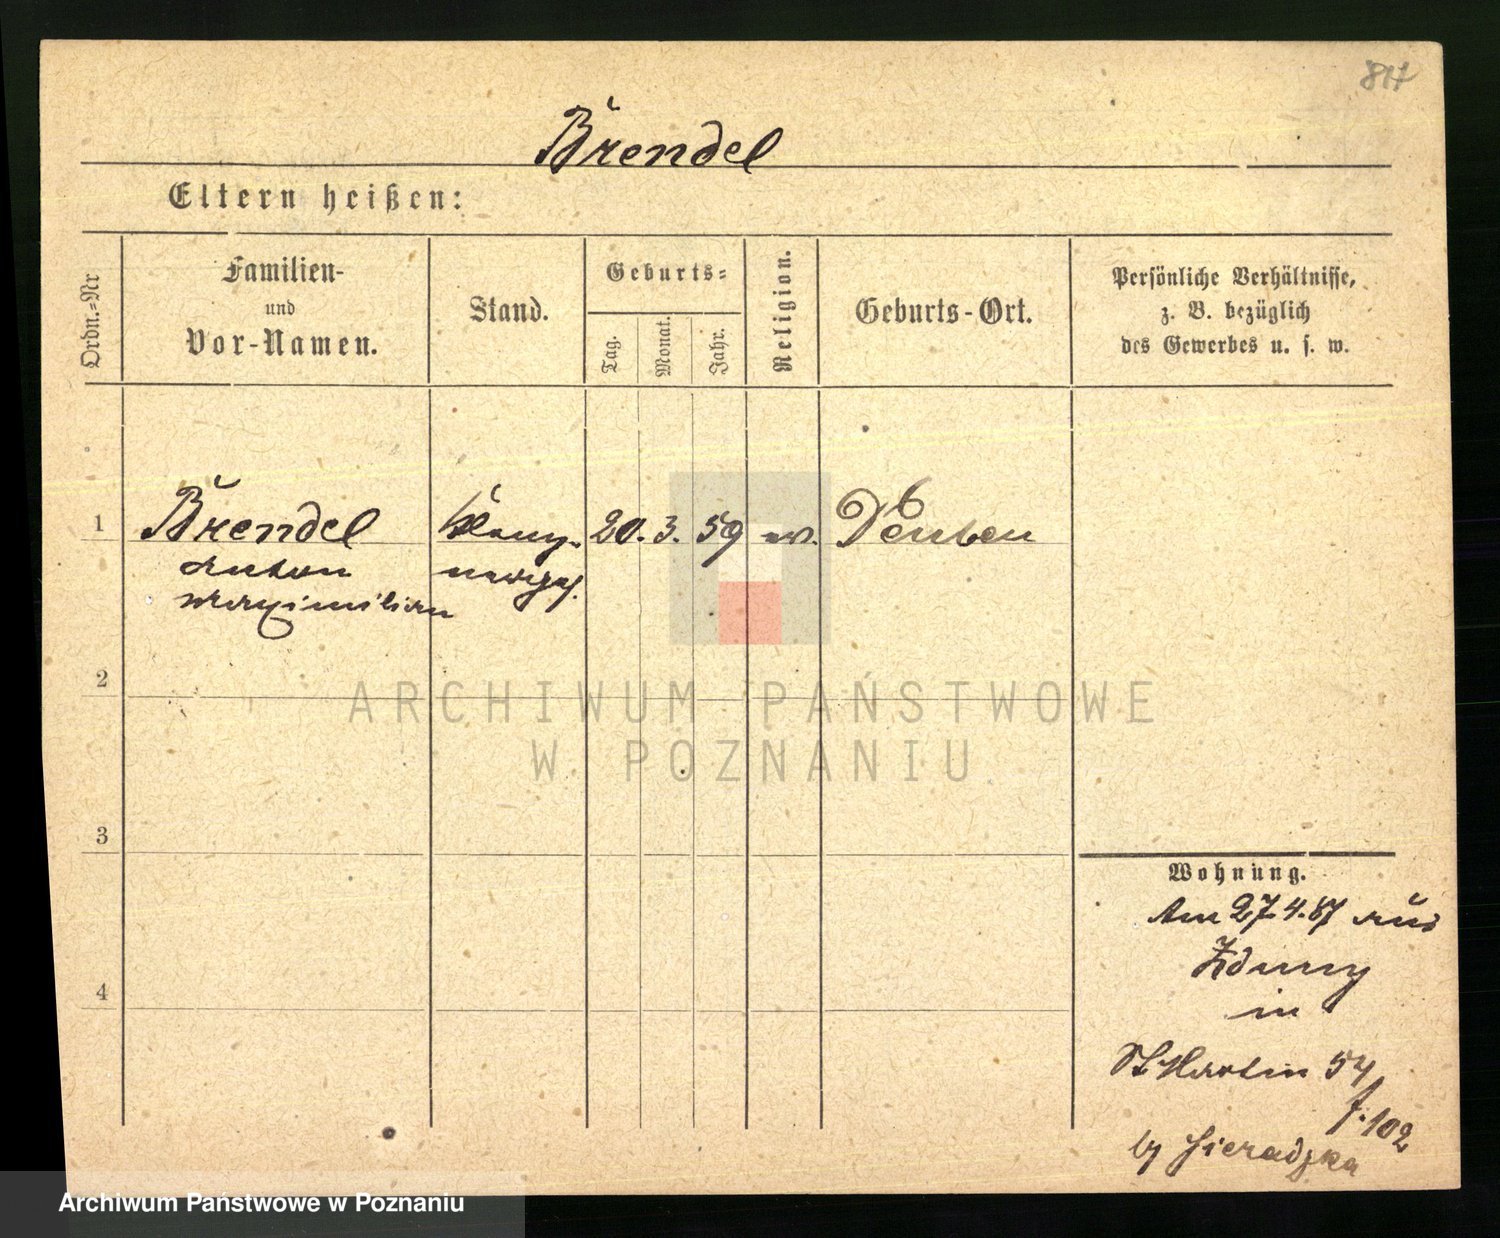 817
Brendel
Eltern heißen:
Ordn.-Nr
Familien-
und
Vor-Namen.
Stand.
Geburts-
Tag.
Monat.
Jahr.
Religion.
Geburts-Ort.
Persönliche Verhältnisse,
z. B. bezüglich
des Gewerbes u. s. w.
1
Brendel
Anton
Maximilian
20. 3. 59 ev.
2
3
4
Wohnung.
Am 27.4.87 aus
Zduny
in
St Martin 54
f. 102
by Sieradzka
ARCHIWUM PAŃSTWOWE
W POZNANIU
Archiwum Państwowe w Poznaniu